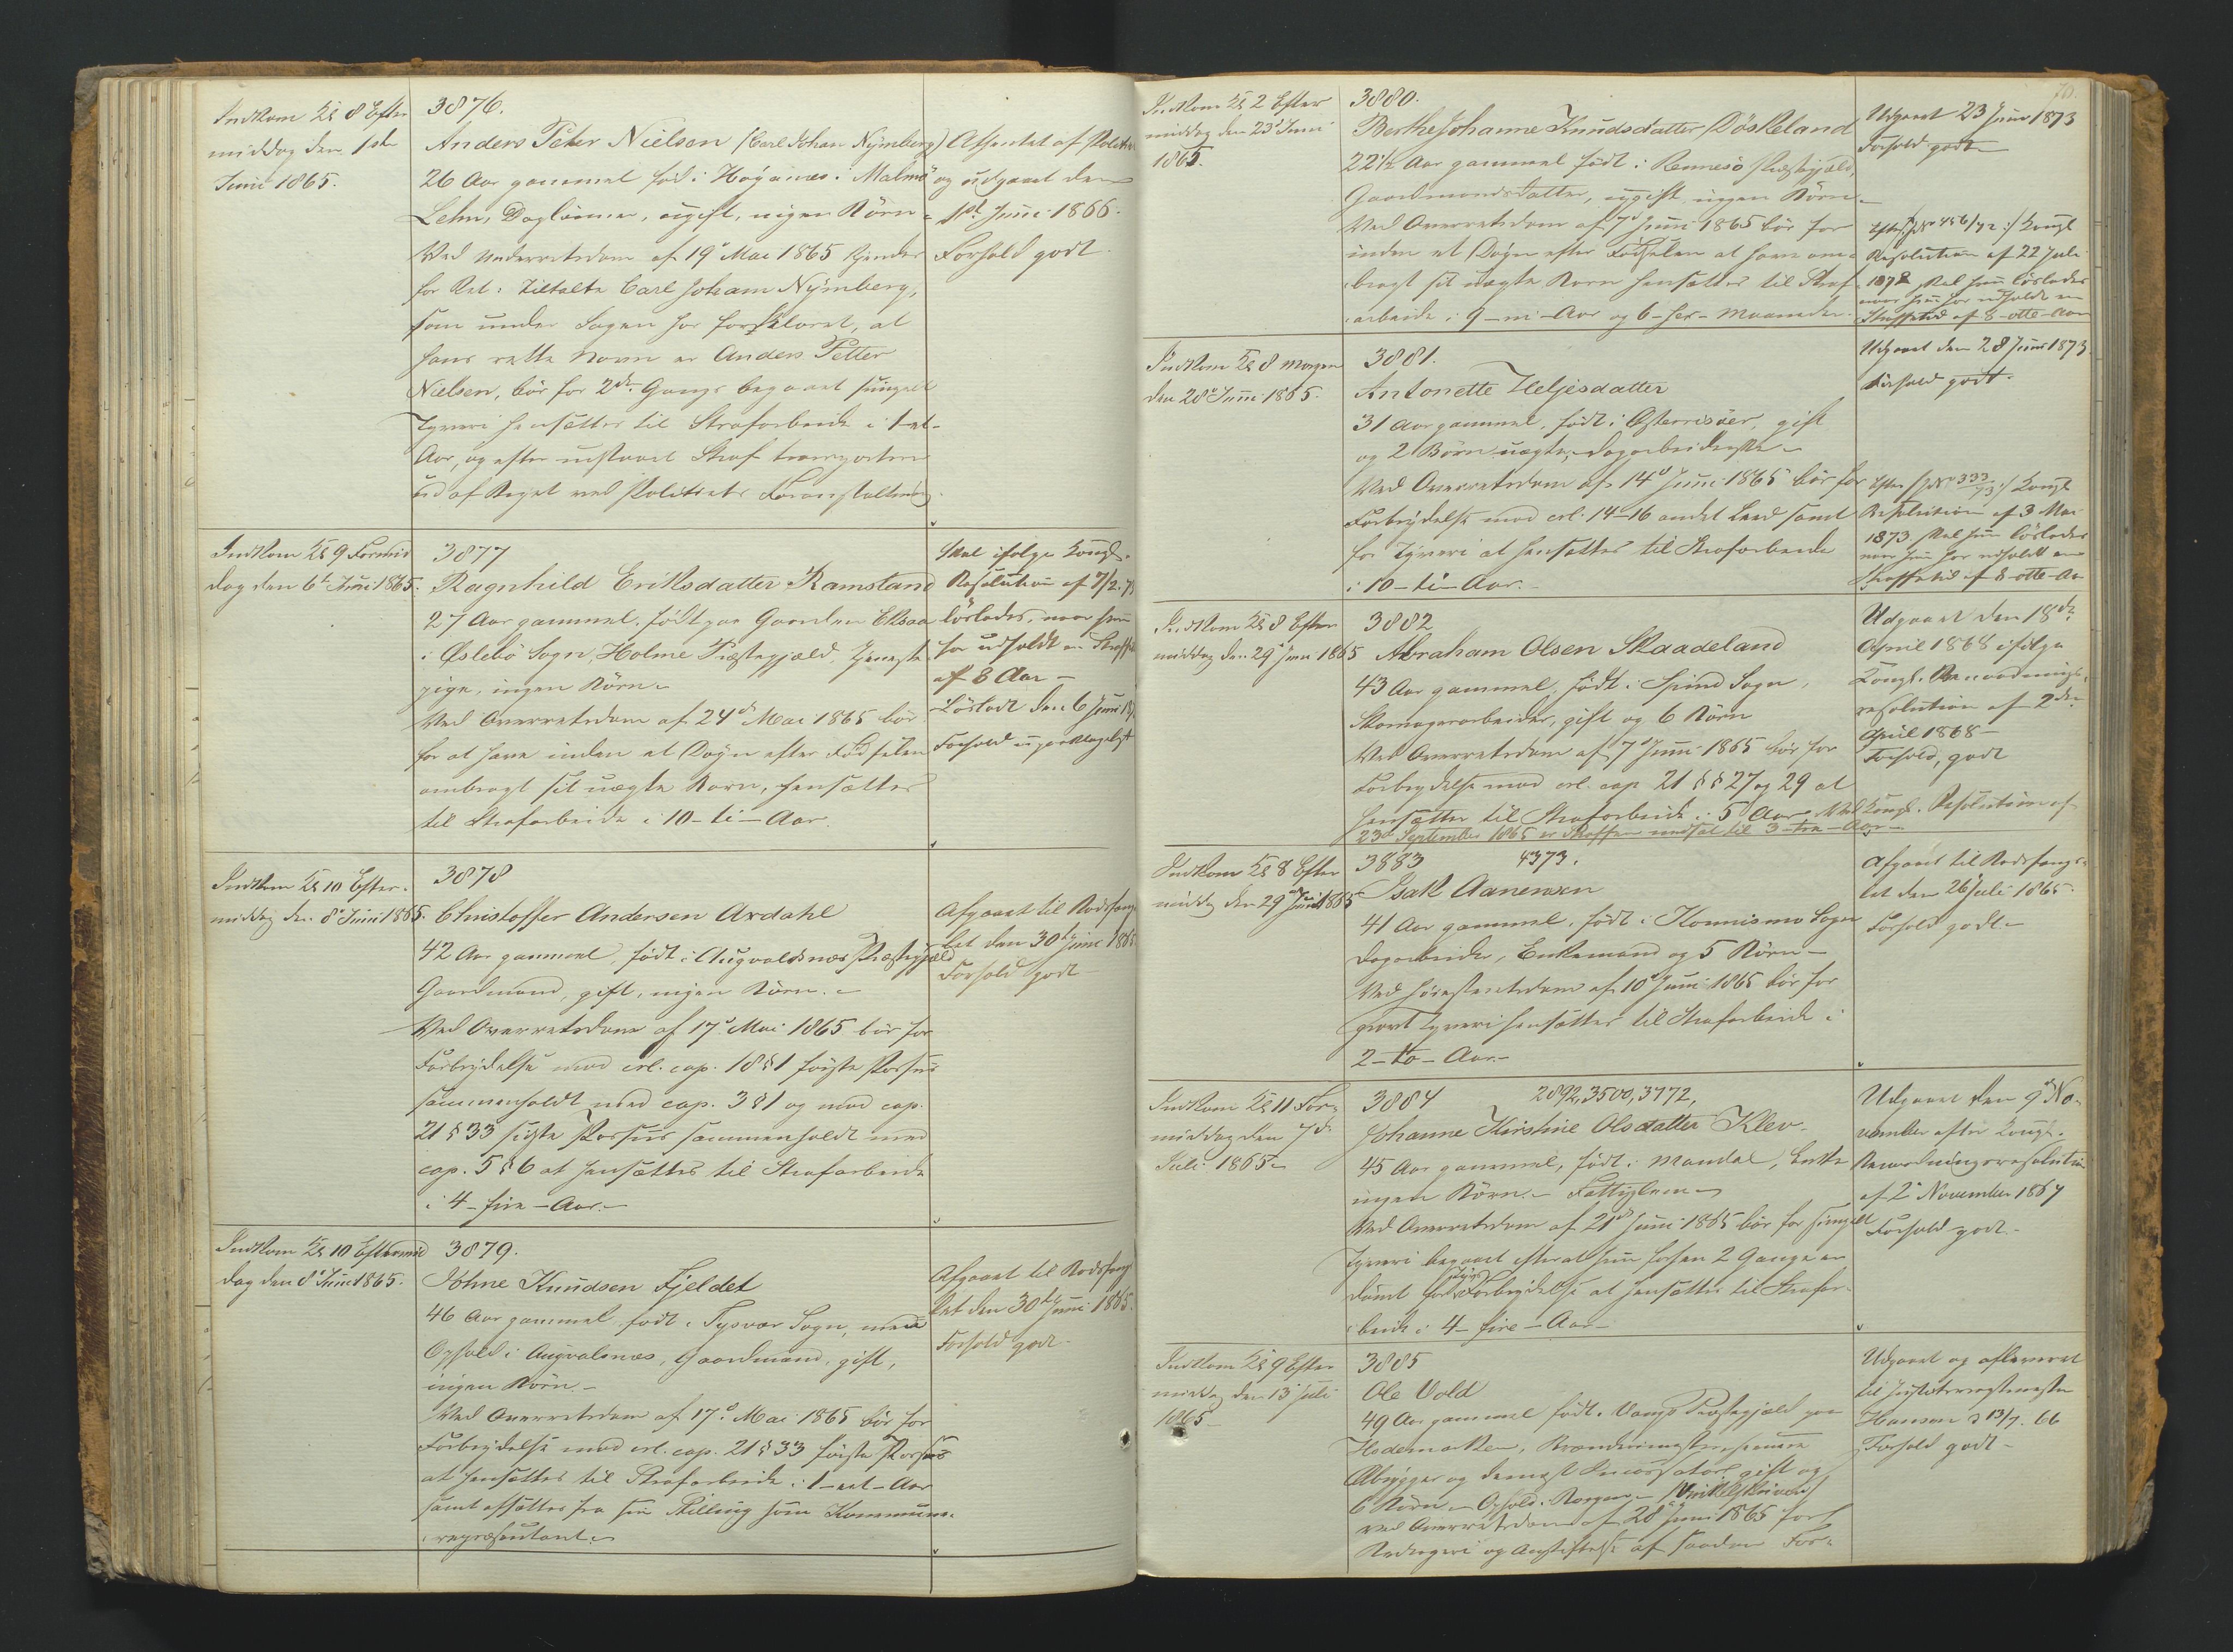 Indkom Kl 8 Efter
middag den 1ste
Juni 1865.
3876.
Anders Peter Nielsen (Carl Johan Nÿmberg)
26 Aar gammel fød i Høganæs i Malmø
Lehn, Daglønner, ugift, ingen Børn
Ved Underretsdom af 19de Mai 1865 kjendes
for Ret: Tiltalte Carl Joham Nÿmberg,
som under Sagen har forklaret, at
hans rette Navn er Anders Petter
Nielsen, bør for 2den Gang begaaet simpelt
Tyveri hensættes til Strafarbeide i 1-et-
Aar, og efter udstaaet Straf transporteres
ud af Riget ved Politiets Foranstaltning.
Afhentet af Politiet
og udgaaet den
1ste Juni 1866.
Forhold godt.
Indkom Kl 9 Formid
dag den 6te Juni 1865.
3877
Ragnhild Eriksdatter Ramsland
27 Aar gammel, født paa Gaarden Eksaa
i Øslebø Sogn, Holme Præstegjæld, Tjeneste
pige, ingen Børn.
Ved Overretsdom af 24de Mai 1865 bør
for at have inden et Døgn efter Fødselen
ombragt sit uægte Barn, hensættes
til Strafarbeide i 10-ti-Aar.
Skal ifølge Kongl.
Resolution af 7/2 73
løslades, naar hun
har udholdt en Straffetid
af 8 Aar -
Løsladt den 6 Juni
Forhold upaaklageligt
Indkom Kl 10 Efter-
middag den 8de Juni 1865.
3878
Christoffer Andersen Ardahl
42 Aar gammel, født i Augvaldsnæs Præstegjæld
Gaardmand, gift, ingen Børn.
Ved Overretsdom af 17de Mai 1865 bør for
Forbrydelse mod crl. cap. 18 § 1 første Passus
sammenholdt med cap. 3 § 1 og mod cap.
21 § 33 sidste Passus sammenholdt med
cap. 5 § 6 at hensættes til Strafarbeide
i 4-fire-Aar.
Afgaaet til Bodsfæng-
let den 30te Juni 1865.
Forhold godt
Indkom Kl 10 Eftermid
dag den 8de Juni 1865.
3879.
Johne Knudsen Fjeldet
46 Aar gammel født i Tysvær Sogn, med
Ophold i Augvalsnæs, Gaardmand, gift,
ingen Børn.
Ved Overretsdom af 17de Mai 1865 bør for
Forbrydelse mod crl. cap. 21 § 33 første Passus
at hensættes til Strafarbeide i 1-eet-Aar
samt afsættes fra sin Stilling som Kommune-
repræsentant.
Afgaaet til Bodsfæng
let den 30te Juni 1865.
Forhold godt
70.
Indkom Kl 2 Efter
middag den 23de Juni
1865.
3880.
Berthe Johanne Knudsdatter Døskeland
22½ Aar gammel født i Rennesø Præstegjæld,
Gaardmandsdatter, ugift, ingen Børn.
Ved Overretsdom af 7de Juni 1865 bør for
inden et Døgn efter Fødselen at have om-
bragt sit uægte Barn hensættes til Straf
arbeide i 9-ni-Aar og 6-sex-Maaneder.
Udgaaet 23 Juni 1873
Forhold godt
Efter No 456/72 Kongl
Resolution af 22 Juli
1872 skal hun løslades
naar hun har udholdt en
Straffetid af 8-otte-Aar
Indkom Kl 8 Morgen
den 28de Juni 1865.
3881.
Antonette Heljesdatter
31 Aar gammel, født i Østerrisøer, gift
og 2 Børn uægte, Dagarbeiderske
Ved Overretsdom af 14de Juni 1865 bør for
Forbrydelse mod crl. 14-16 andet Leed samt
for Tyveri at hensættes til Strafarbeide
i 10-ti-Aar.
Udgaaet den 28 Juni 1873
Forhold godt.
Efter No 333/73 Kongl
Resolution af 3 Mai
1873 skal hun løslades
naar hun har udholdt en
Straffetid af 8-otte-Aar
Indkom Kl 8 Efter
middag den 29de Juni 1865
3882
Abraham Olsen Skaadeland
43 Aar gammel, født i Spind Sogn,
Skomagerarbeider, gift og 6 Børn
Ved Overretsdom af 7de Juni 1865 bør for
Forbrydelse mod crl. cap 21 §§ 27 og 29 at
hensættes til Strafarbeide i 5 Aar. Ved Kongl. Resolution af
23de September 1865 er Straffen nedsat til 3-tre-Aar
Udgaaet den 18de
April 1868 ifølge
Kongl. Benaadnings-
resolution af 2den
April 1868-
Forhold, godt
Indkom Kl 8 Efter
middag den 29de Juni 1865
3883 4373.
Isak Aanensen
41 Aar gammel, født i Konnismo Sogn
Dagarbeider, Enkemand og 5 Børn
Ved Høiesteretsdom af 10de Juni 1865 bør for
grovt Tyveri hensættes til Strafarbeide i
2-to-Aar.
Afgaaet til Bodsfæng-
let den 26 Juli 1865.
Forhold godt
Indkom Kl 11 For-
middag den 7de
Juli 1865
3884 2892, 3500, 3772,
Johanne Kirstine Olsdatter Klev.
45 Aar gammel, født i Mandal, Enke
ingen Børn. Fattiglem
Ved Overretsdom af 21de Juni 1865 bør for simpelt
Tyveri begaaet efterat hun forhen 2 Gange er
dømt for slige Forbrydelse at hensættes til Strafar-
beide i 4-fire-Aar
Udgaaet den 9de No-
vember efter Kongl.
Benaadningsresolution
af 2de November 1867
Forhold godt
Indkom Kl 9 Efter
middag den 13de Juli
1865
3885
Ole Vold
49 Aar gammel født i Vangs Præstegjæld paa
Hedemarken, Brænderimester, senere
Ølbrygger og dernæst Incassator, gift og
6 Børn. Ophold. Bergen (Vinkelskriver)
ved Overretsdom af 28de Juni 1865 for
Bedrageri og Anstiftelse af saadan For-
Udgaaet og afleveret
til
Hansen d 13/7. 66
Forhold godt